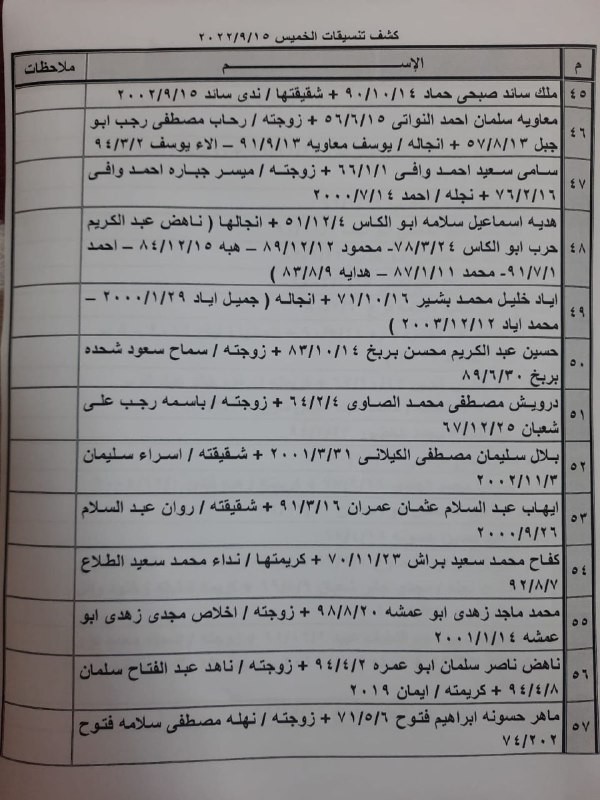 كشف تنسيقات الخميس ٢٠٢٢/٩/١٥
م الإســـــم ملاحظات
٤٥ ملك سائد صبحى حماد ٩٠/١٠/١٤ + شقيقتها / ندى سائد ٢٠٠٢/٩/١٥
٤٦ معاويه سلمان احمد النواتى ٥٦/٦/١٥ + زوجته / رحاب مصطفى رجب ابو
جبل ٥٧/٨/١٣ + انجاله / يوسف معاويه ٩١/٩/١٣ – الاء يوسف ٩٤/٣/٢
٤٧ سامى سعيد احمد وافى ٦٦/١/١ + زوجته / ميسر جباره احمد وافى
٧٦/٢/١٦ + نجله / احمد ٢٠٠٠/٧/١٤
٤٨ هديه اسماعيل سلامه ابو الكاس ٥١/١٢/٤ + انجالها ( ناهض عبد الكريم
حرب ابو الكاس ٧٨/٣/٢٤- محمود ٨٩/١٢/١٢ – هبه ٨٤/١٢/١٥ – احمد
٩١/٧/١- محمد ٨٧/١/١١ – هدايه ٨٣/٨/٩ )
٤٩ اياد خليل محمد بشير ٧١/١٠/١٦ + انجاله ( جميل اياد ٢٠٠٠/١/٢٩ –
محمد اياد ٢٠٠٣/١٢/١٢ )
٥٠ حسين عبد الكريم محسن بربخ ٨٣/١٠/١٤ + زوجته / سماح سعود شحده
بربخ ٨٩/٦/٣٠
٥١ درويش مصطفى محمد الصاوى ٦٤/٢/٤ + زوجته / باسمه رجب على
شعبان ٦٧/١٢/٢٥
٥٢ بلال سليمان مصطفى الكيلانى ٢٠٠١/٣/٣١ + شقيقته / اسراء سليمان
٢٠٠٢/١١/٣
٥٣ ايهاب عبد السلام عثمان عمران ٩١/٣/١٦ + شقيقته / روان عبد السلام
٢٠٠٠/٩/٢٦
٥٤ كفاح محمد سعيد براش ٧٠/١١/٢٣ + كريمتها / نداء محمد سعيد الطلاع
٩٢/٨/٧
٥٥ محمد ماجد زهدى ابو عمشه ٩٨/٨/٢٠ + زوجته / اخلاص مجدى زهدى ابو
عمشه ٢٠٠١/١/١٤
٥٦ ناهض ناصر سلمان ابو عمره ٩٤/٤/٢ + زوجته / ناهد عبد الفتاح سلمان
٩٤/٤/٨ + كريمته / ايمان ٢٠١٩
٥٧ ماهر حسونه ابراهيم فتوح ٧١/٥/٦ + زوجته / نهله مصطفى سلامه فتوح
٧٤/٢٠٢